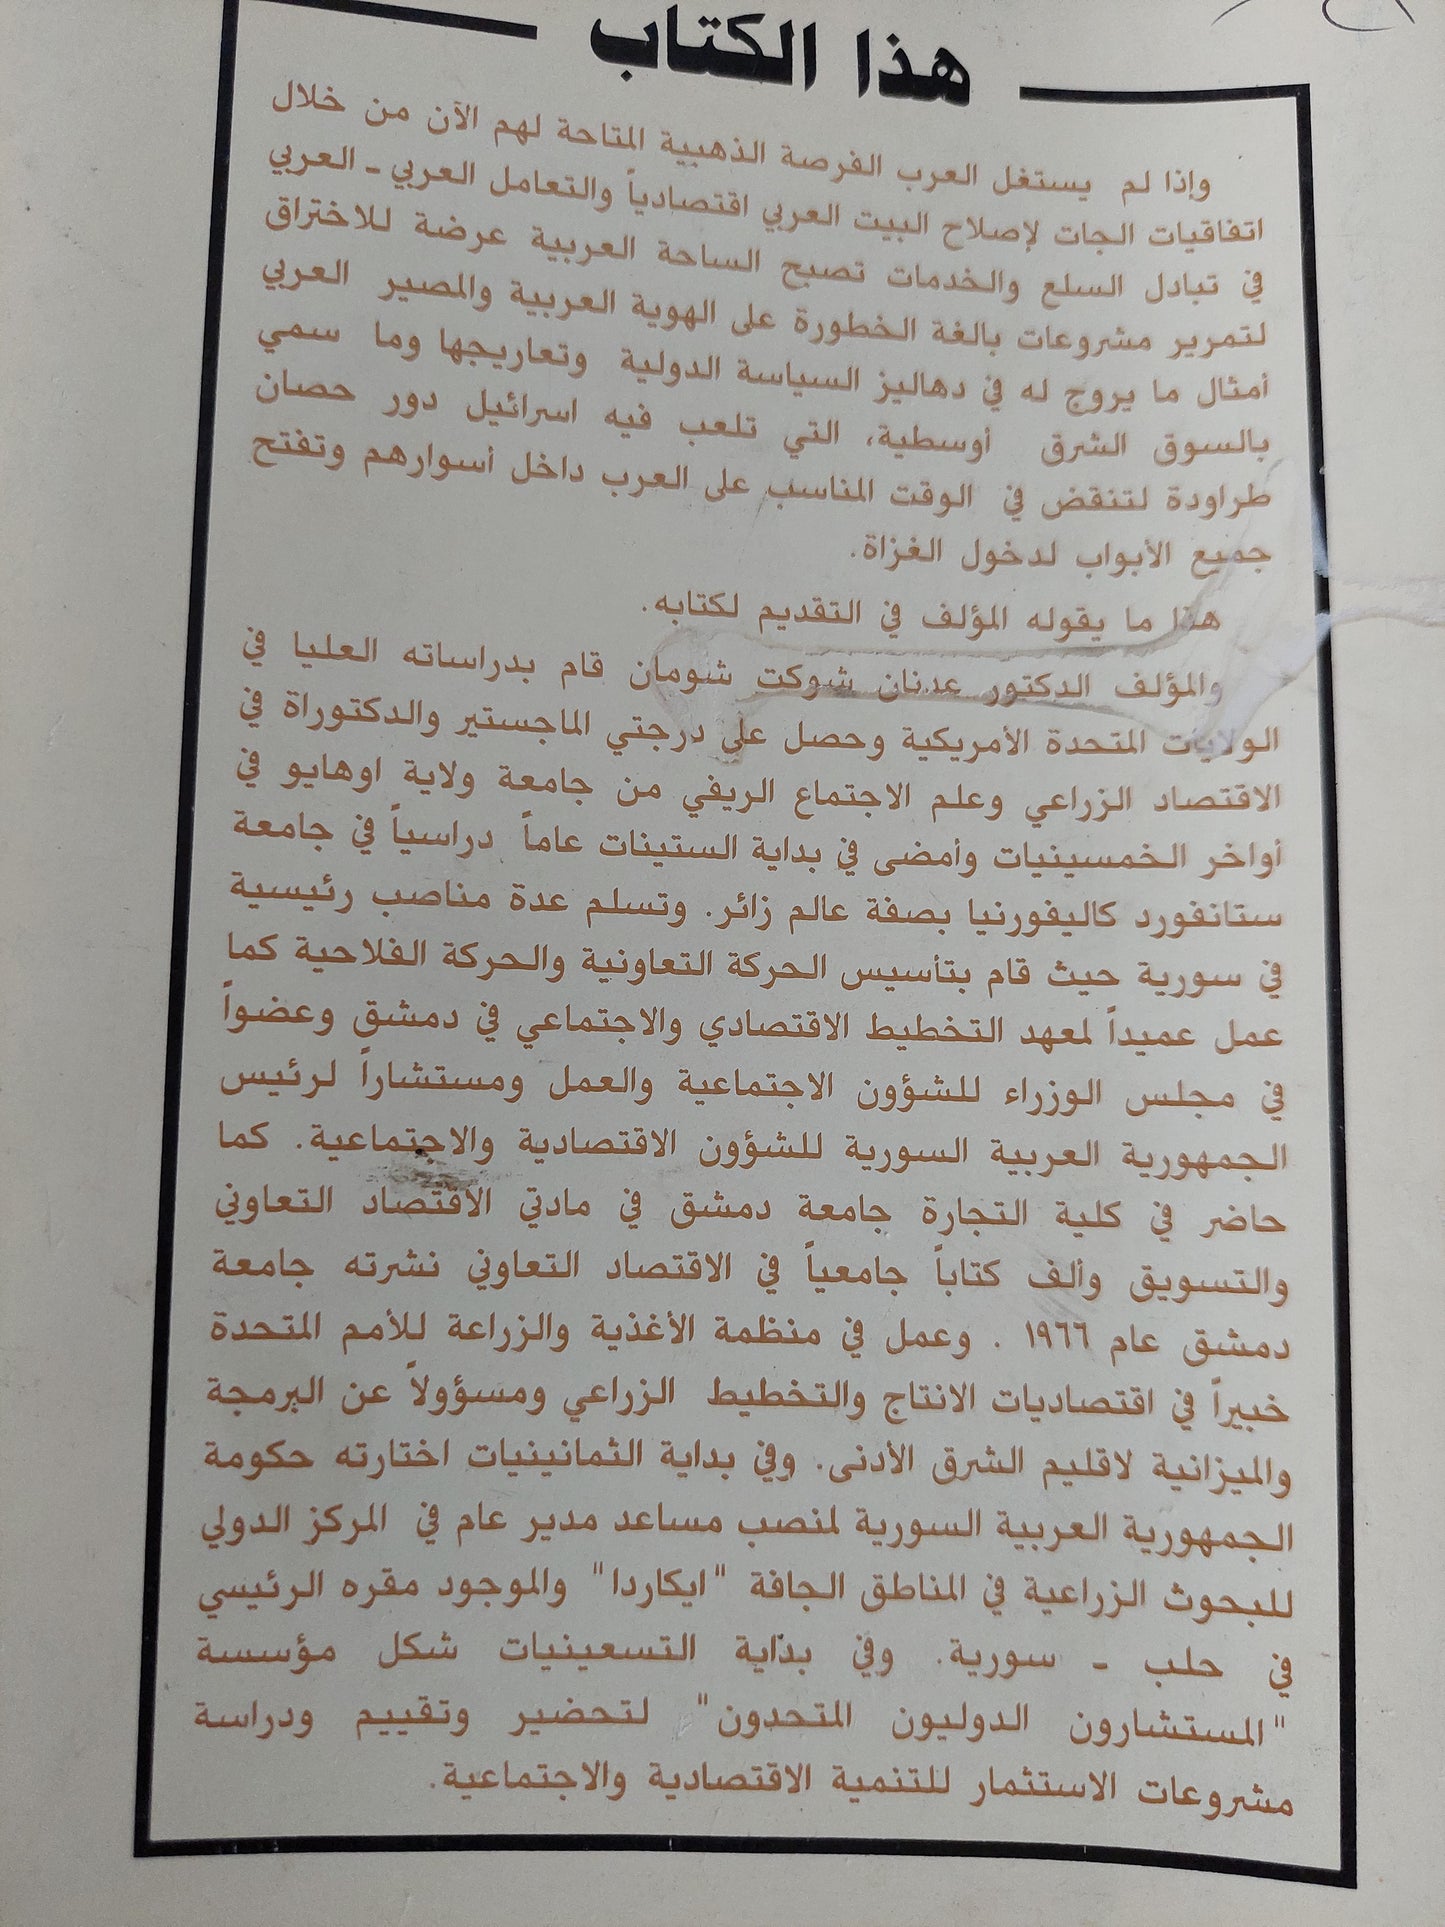 هذا الكتاب
وإذا لم يستغل العرب الفرصة الذهبية المتاحة لهم الآن من خلال
اتفاقيات الجات لإصلاح البيت العربي اقتصادياً والتعامل العربي - العربي
في تبادل السلع والخدمات تصبح الساحة العربية عرضة للاختراق
لتمرير مشروعات بالغة الخطورة على الهوية العربية والمصير العربي
أمثال ما يروج له في دهاليز السياسة الدولية وتعاريجها وما سمي
بالسوق الشرق أوسطية، التي تلعب فيه اسرائيل دور حصان
طراودة لتنقض في الوقت المناسب على العرب داخل أسوارهم وتفتح
جميع الأبواب لدخول الغزاة.
هذا ما يقوله المؤلف في التقديم لكتابه.
والمؤلف الدكتور عدنان شوكت شومان قام بدراساته العليا في
الولايات المتحدة الأمريكية وحصل على درجتي الماجستير والدكتوراة في
الاقتصاد الزراعي وعلم الاجتماع الريفي من جامعة ولاية اوهايو في
أواخر الخمسينيات وأمضى في بداية الستينات عاماً دراسياً في جامعة
ستانفورد كاليفورنيا بصفة عالم زائر. وتسلم عدة مناصب رئيسية
في سورية حيث قام بتأسيس الحركة التعاونية والحركة الفلاحية كما
عمل عميداً لمعهد التخطيط الاقتصادي والاجتماعي في دمشق وعضواً
في مجلس الوزراء للشؤون الاجتماعية والعمل ومستشاراً لرئيس
الجمهورية العربية السورية للشؤون الاقتصادية والاجتماعية. كما
حاضر في كلية التجارة جامعة دمشق في مادتي الاقتصاد التعاوني
والتسويق وألف كتاباً جامعياً في الاقتصاد التعاوني نشرته جامعة
دمشق عام ١٩٦٦ . وعمل في منظمة الأغذية والزراعة للأمم المتحدة
خبيراً في اقتصاديات الانتاج والتخطيط الزراعي ومسؤولاً عن البرمجة
والميزانية لاقليم الشرق الأدنى. وفي بداية الثمانينيات اختارته حكومة
الجمهورية العربية السورية لمنصب مساعد مدير عام في المركز الدولي
للبحوث الزراعية في المناطق الجافة "ايكاردا" والموجود مقره الرئيسي
في حلب - سورية. وفي بداية التسعينيات شكل مؤسسة
"المستشارون الدوليون المتحدون" لتحضير وتقييم ودراسة
مشروعات الاستثمار للتنمية الاقتصادية والاجتماعية.